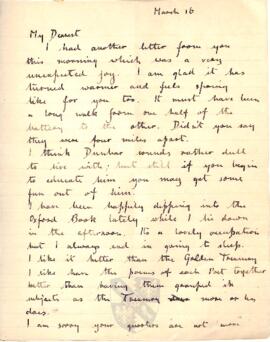 March 16
My Dearest
I had another letter from you
this morning which was a very
unexpected joy. I am glad it has
turned warmer and feels spring
like for you too. It must have been
a long walk from one half of the
battery to the other. Didn't you say
they were four miles apart.
I think Dunbar sounds rather dull
to live with; but still if you begin
to educate him you may get some
fun out of him.
I have been happily dipping into the
Oxford Book lately while I lie down
in the afternoon. Its a lovely occupation
but I always end in going to sleep.
I like it better than the Golden Treasury
I like have the poems of each Poet together
better than having them grouped in
subjects as the Treasury more or less
does.
I am sorry your quarters are not more